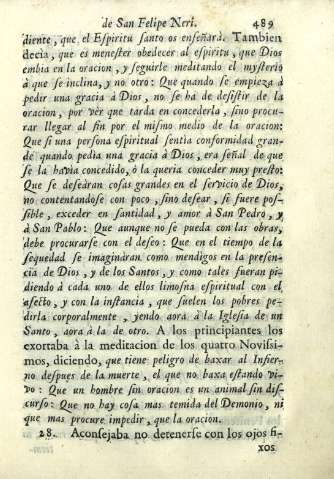 de San Felipe Neri. 489
diente, que el Espiritu santo os enseñarà. Tambien
decia, que es menester obedecer al espiritu, que Dios
embia en la oracion, y seguirle meditando el mysterio
à que se inclina, y no otro: Que quando se empieza à
pedir una gracia à Dios, no se ha de desistir de la
oracion, por vèr que tarda en concederla, sino procu-
rar llegar al fin por el mismo medio de la oracion:
Que si una persona espiritual sentia conformidad gran-
de quando pedia una gracia à Dios, era señal de que
se la havia concedido, ò la queria conceder muy presto:
Que se deseàran cosas grandes en el servicio de Dios,
no contentandose con poco, sino desear, si fuere pos-
sible, exceder en santidad, y amor à San Pedro, y
à San Pablo: Que aunque no se pueda con las obras,
debe procurarse con el deseo: Que en el tiempo de la
sequedad se imaginàran como mendigos en la presen-
cia de Dios, y de los Santos, y como tales fueran pi-
diendo à cada uno de ellos limosna espiritual con el
afecto, y con la instancia, que suelen los pobres pe-
dirla corporalmente, yendo aora à la Iglesia de un
Santo, aora à la de otro. A los principiantes los
exortaba à la meditacion de los quatro Novissi-
mos, diciendo, que tiene peligro de baxar al Infier-
no despues de la muerte, el que no baxa estando vi-
vo: Que un hombre sin oracion es un animal sin dis-
curso: Que no hay cosa mas temida del Demonio, ni
que mas procure impedir, que la oracion.
28. Aconsejaba no detenerse con los ojos fi-
xos